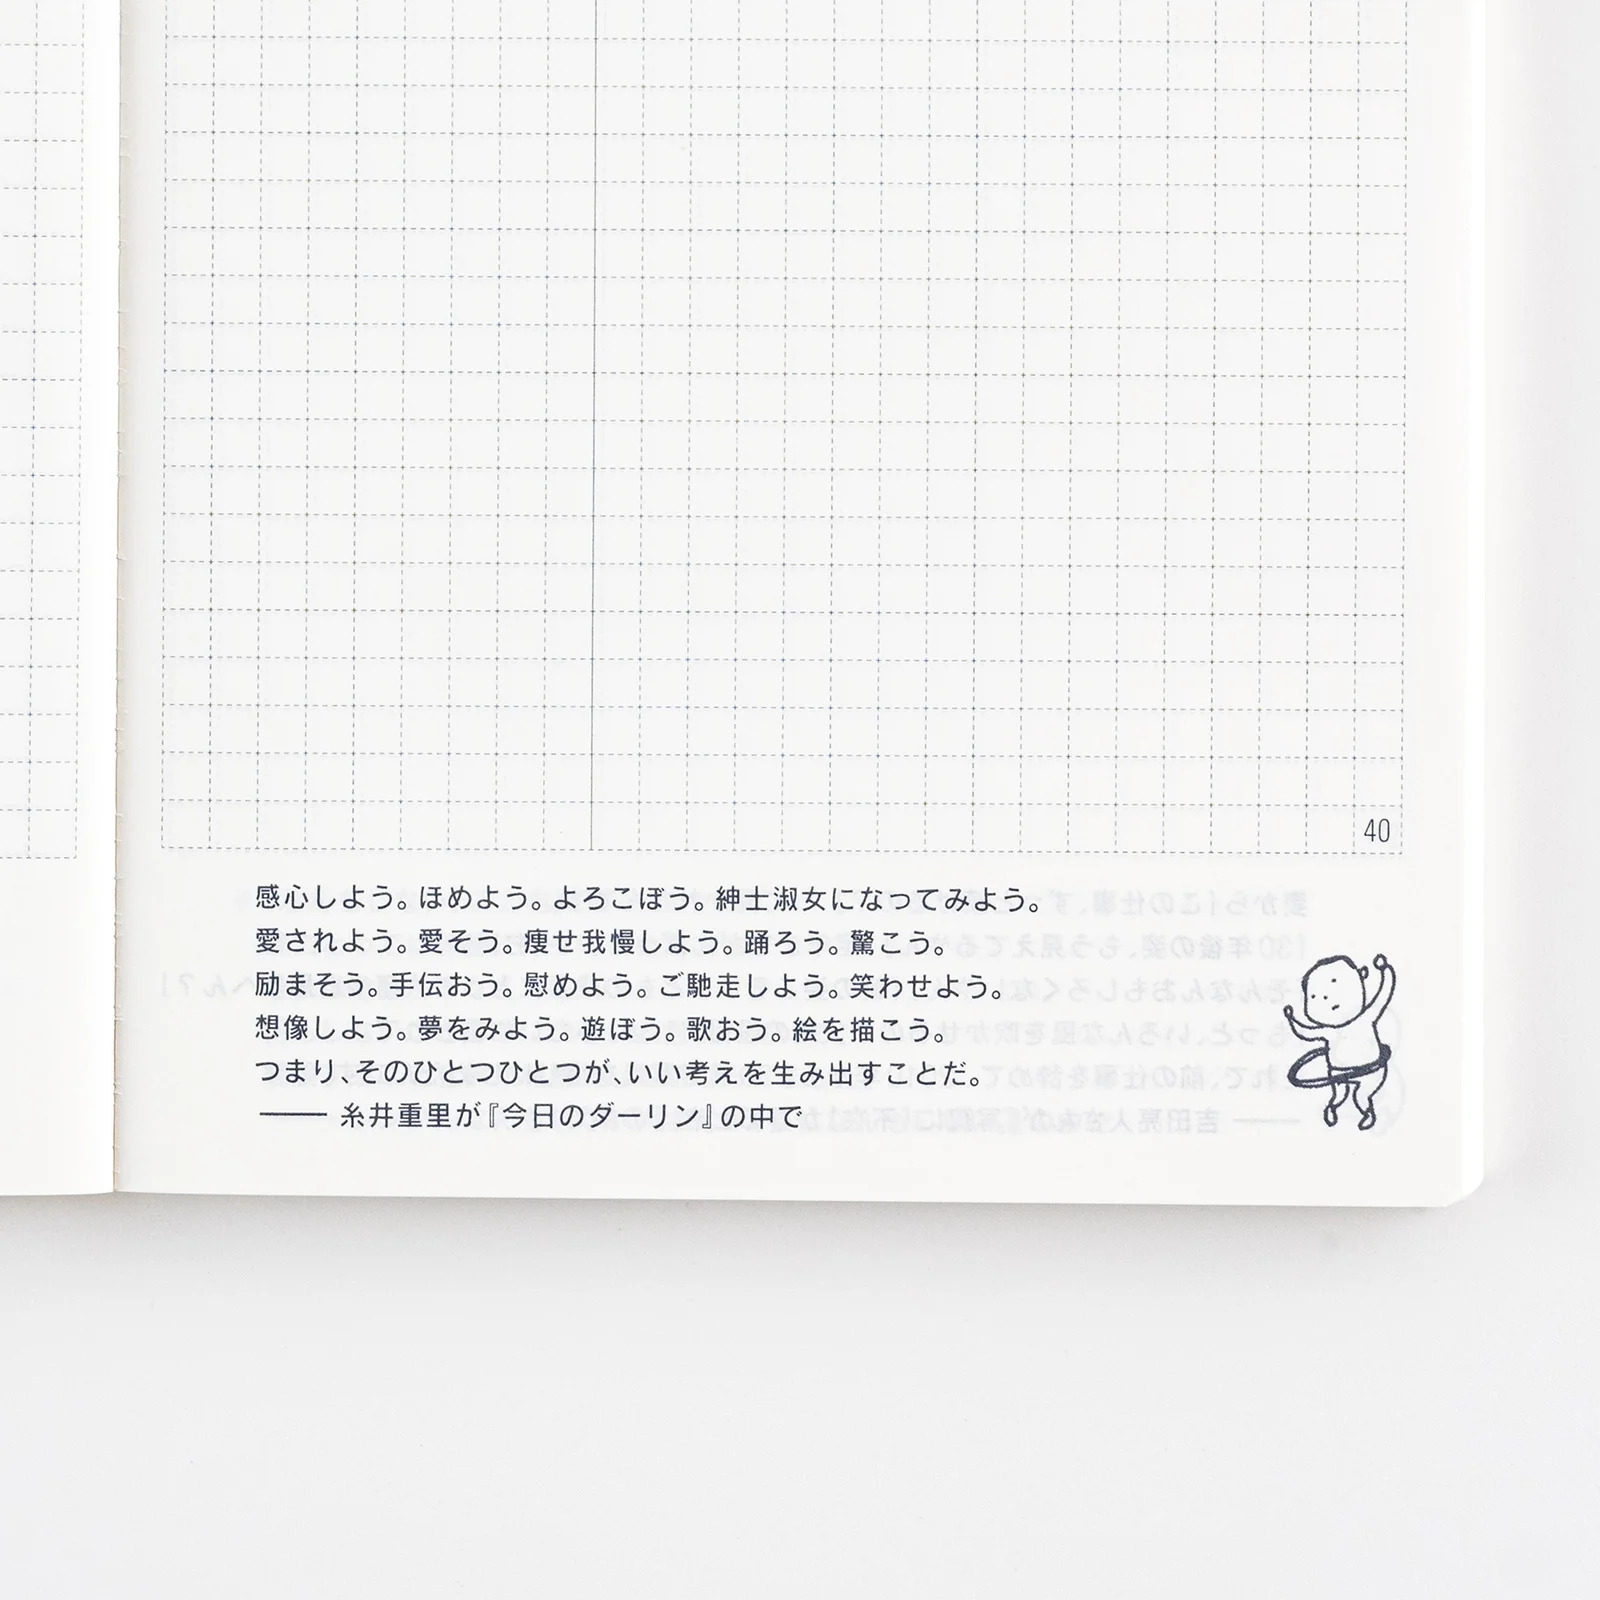 40
感心しよう。ほめよう。よろこぼう。紳士淑女になってみよう。
愛されよう。愛そう。痩せ我慢しよう。踊ろう。驚こう。
励まそう。手伝おう。慰めよう。ご馳走しよう。笑わせよう。
想像しよう。夢をみよう。遊ぼう。歌おう。絵を描こう。
つまり、そのひとつひとつが、いい考えを生み出すことだ。
—— 糸井重里が『今日のダーリン』の中で